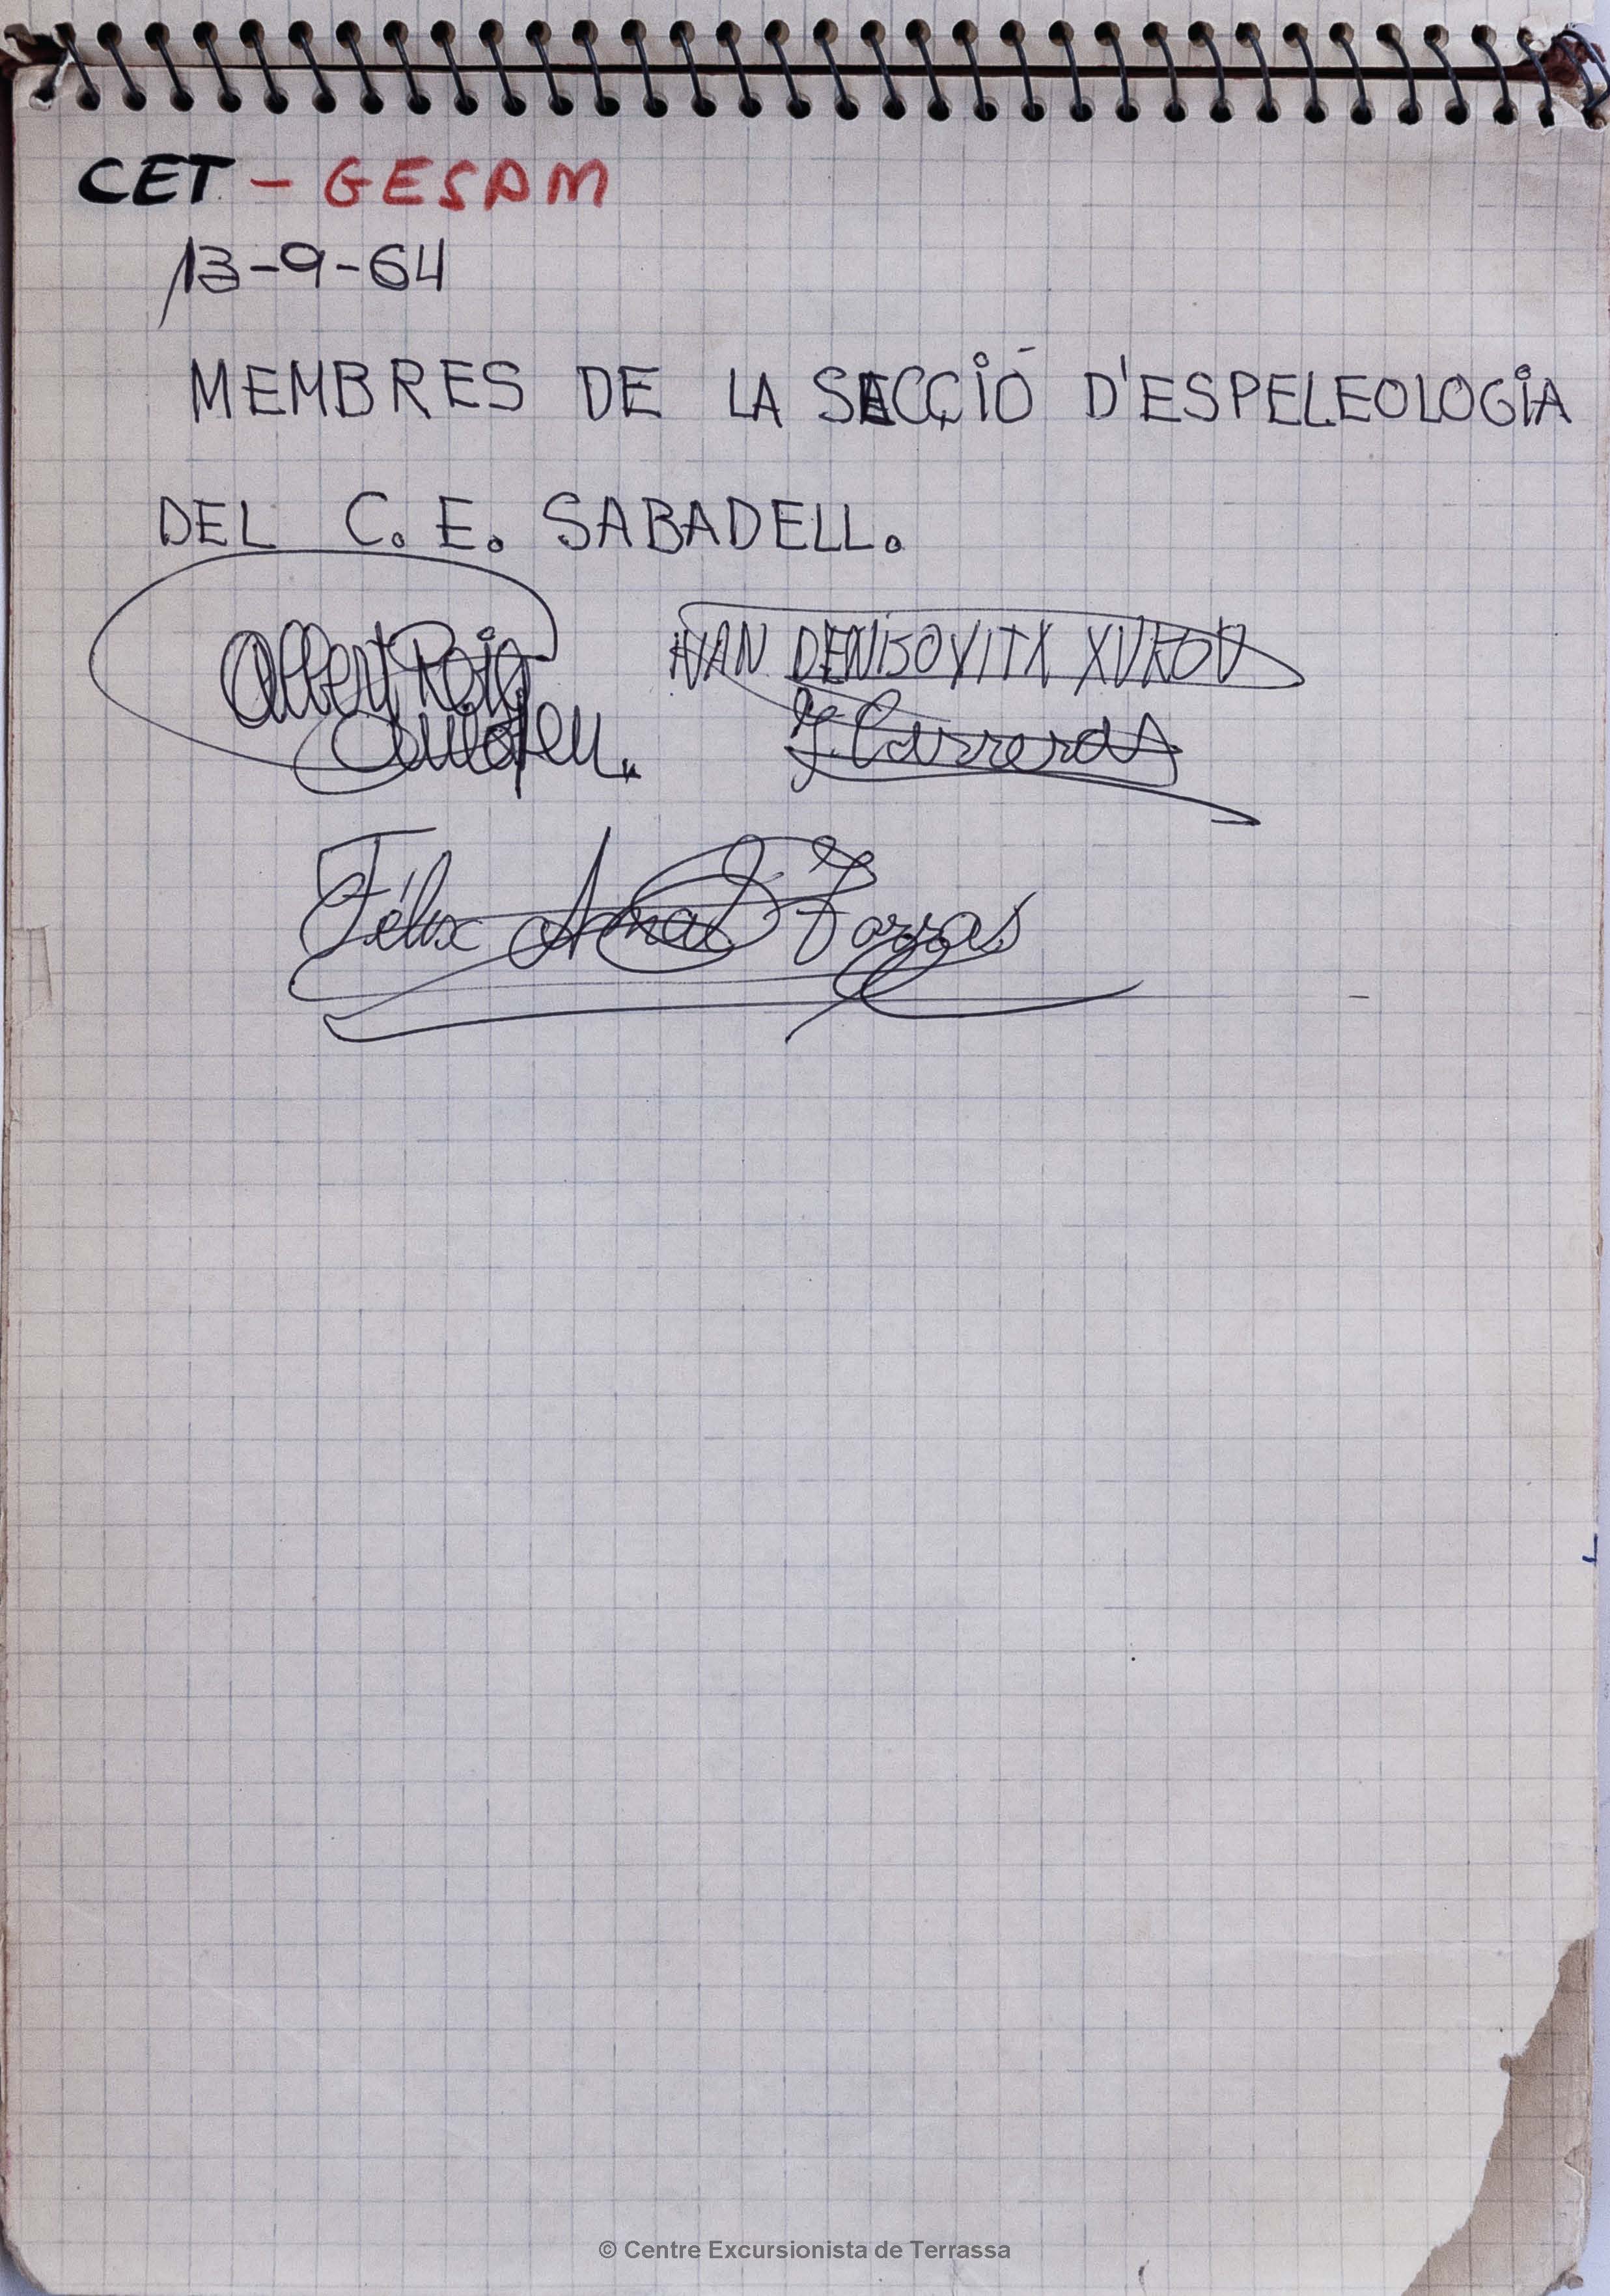 CET - GESAM
13-9-64
MEMBRES DE LA SECCIÓ D'ESPELEOLOGIA
DEL C. E. SABADELL.
Albert Roig
IVAN DENISOVITX XUKOV
J. Carreras
Félix Arnal Farras
© Centre Excursionista de Terrassa